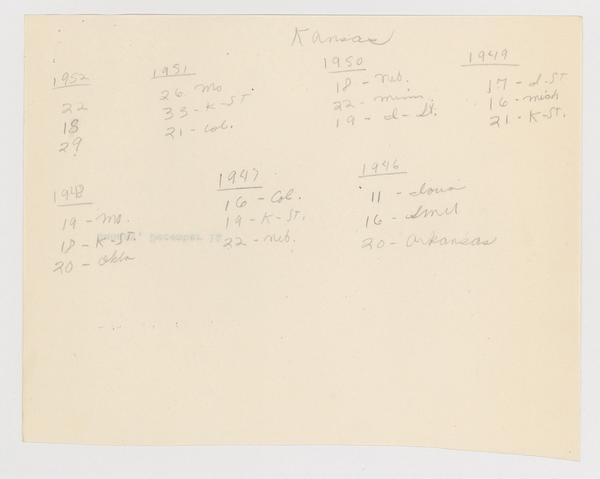 Kansas
1952
22
18
29
1951
26 Mo
33 - K-ST
21 - Col.
1950
18 - Neb.
22 - Minn.
19 - I - St.
1949
17 - I-ST
16 - Mich
21 - K-ST.
1948
19 - Mo.
18 - K-ST.
20 - Okla
1947
16 - Col.
19 - K-ST.
22 - Neb.
1946
11 - Iowa
16 -
20 - Arkansas
December